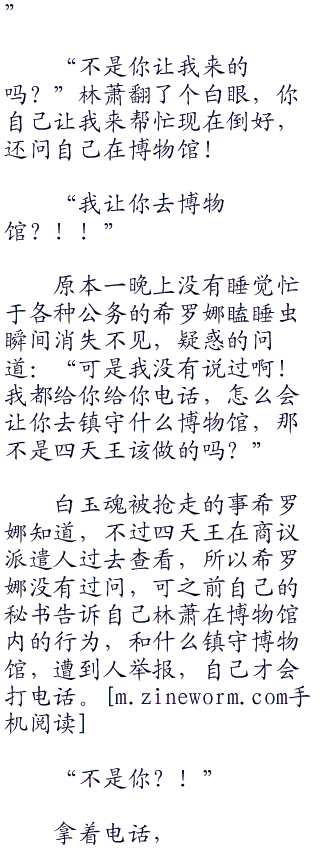 ”
“不是你让我来的
吗？”林萧翻了个白眼，你
自己让我来帮忙现在倒好，
还问自己在博物馆！
“我让你去博物
馆？！！”
原本一晚上没有睡觉忙
于各种公务的希罗娜瞌睡虫
瞬间消失不见，疑惑的问
道：“可是我没有说过啊！
我都给你给你电话，怎么会
让你去镇守什么博物馆，那
不是四天王该做的吗？”
白玉魂被抢走的事希罗
娜知道，不过四天王在商议
派遣人过去查看，所以希罗
娜没有过问，可之前自己的
秘书告诉自己林萧在博物馆
内的行为，和什么镇守博物
馆，遭到人举报，自己才会
打电话。[m.zineworm.com手
机阅读]
“不是你？！”
拿着电话，